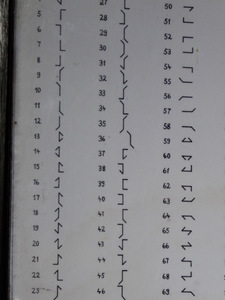 5
6
7
8
9
10
11
12
13
14
15
16
17
18
19
20
21
22
23
27
28
29
30
31
32
33
34
35
36
37
38
39
40
41
42
43
44
45
46
50
51
52
53
54
55
56
57
58
59
60
61
62
63
64
65
66
67
68
69